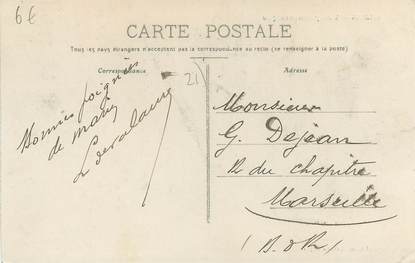 6€
CARTE POSTALE
Tous les pays étrangers n'acceptent pas la correspondance au recto (se renseigner à la poste)
Correspondance
Adresse
21
Bonnes poignées
de main
Monsieur
G. Dejean
R du chapitre
Marseille
(B. d R)